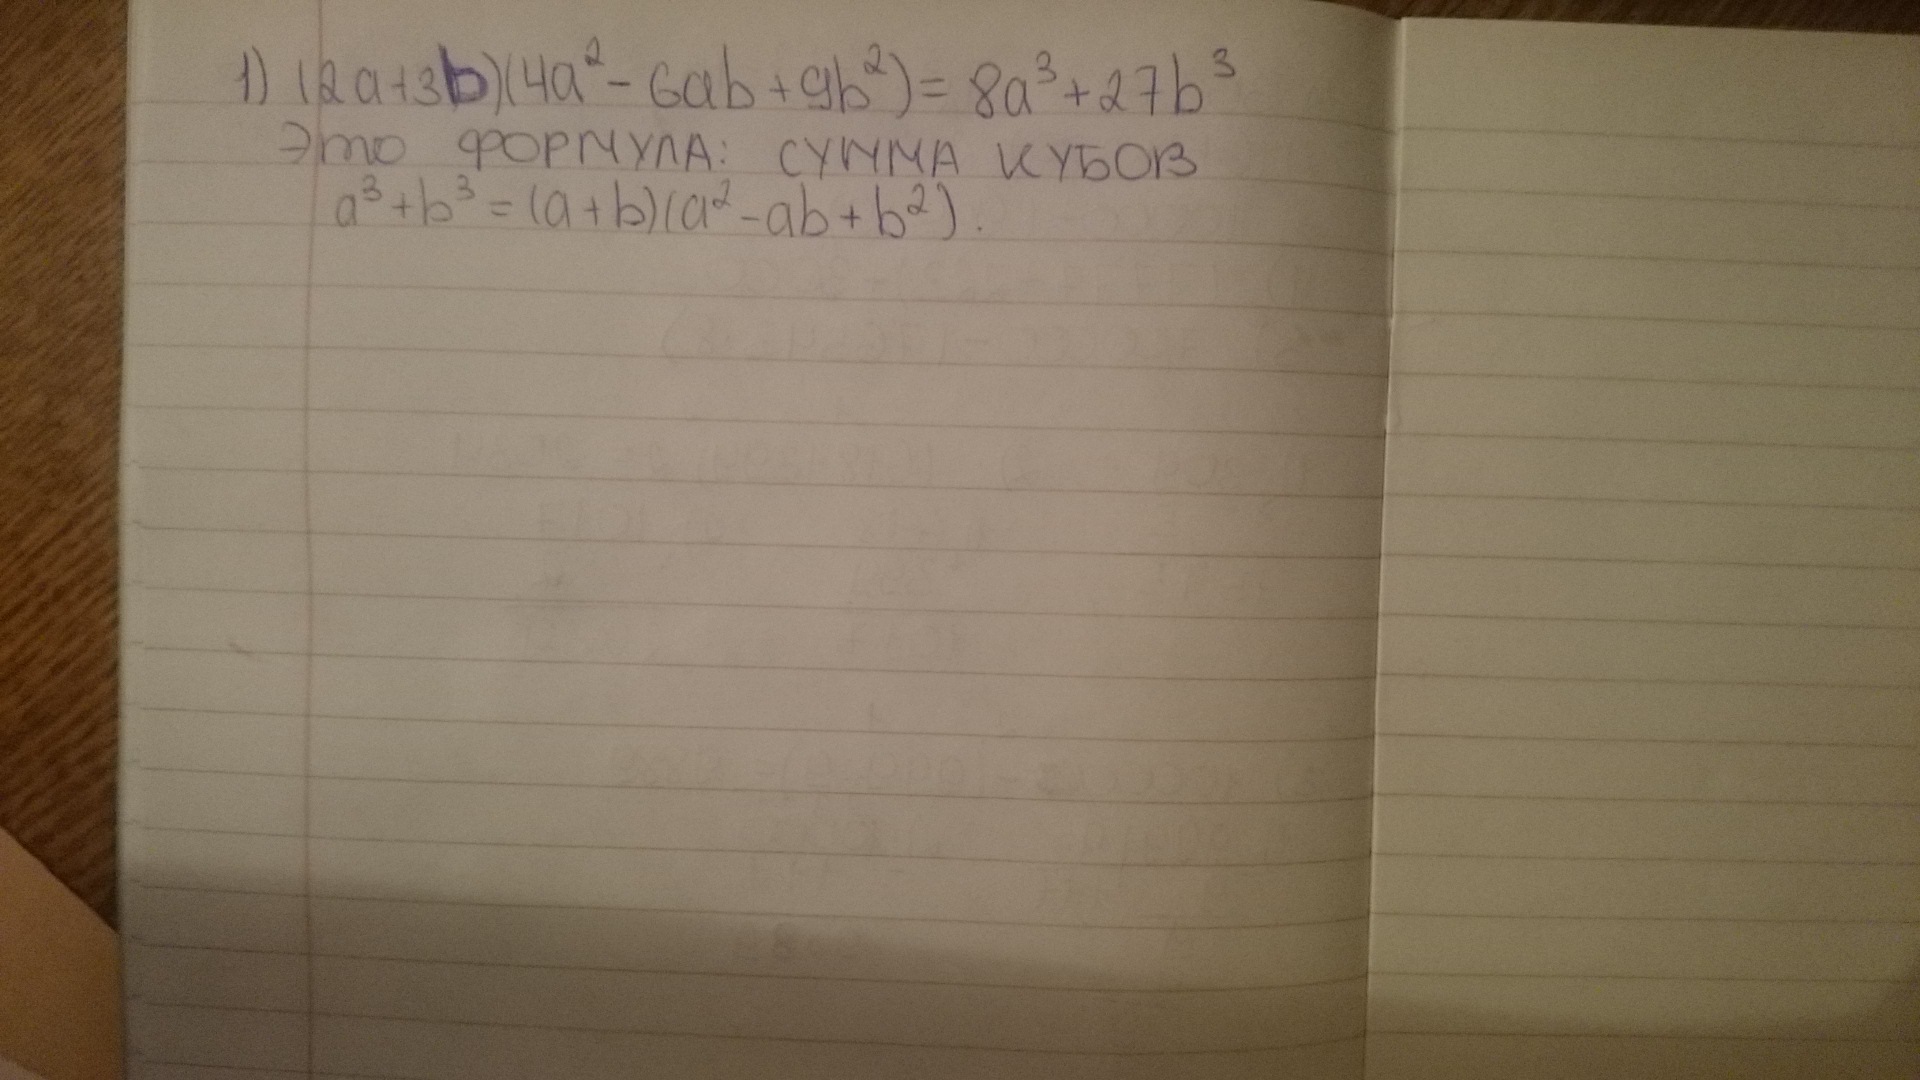 1) (2a+3b)(4a²-6ab+9b²)=8a³+27b³
Это ФОРМУЛА: СУММА КУБОВ
a³+b³=(a+b)(a²-ab+b²).